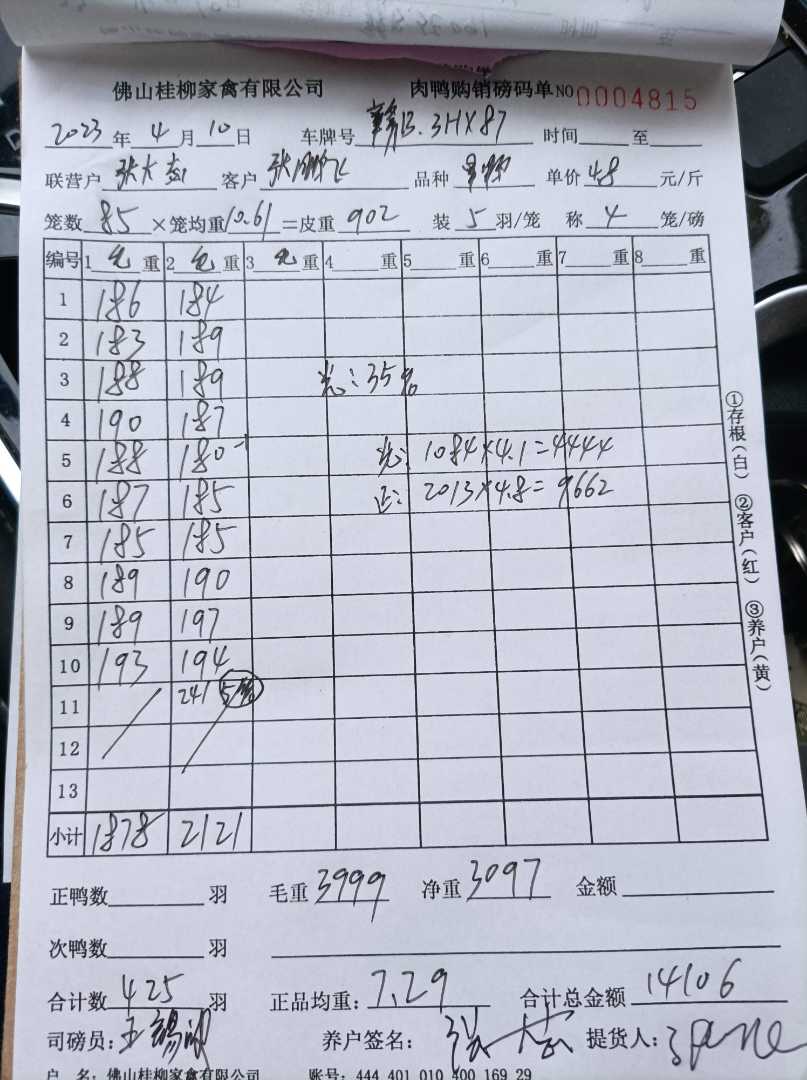 佛山桂柳家禽有限公司 肉鸭购销磅码单 NO 0004815
2023年4月10日 车牌号 B.3HX87 时间 至
联营户 张大 客户 张 飞 品种 单价 4.8 元/斤
笼数 85 ×笼均重 10.61 =皮重 902 装 5 羽/笼 称 4 笼/磅
编号 1 毛 重 2 毛 重 3 毛 重 4 重 5 重 6 重 7 重 8 重
1 186 184
2 183 189
3 188 189 光:35%
4 190 187
5 188 180 光: 1084×4.1=4444
6 187 185 正: 2013×4.8=9662
7 185 185
8 189 190
9 189 197
10 193 194
11 241 5笼
12
13
小计 1878 2121
①存根(白) ②客户(红) ③养户(黄)
正鸭数 羽 毛重 3999 净重 3097 金额
次鸭数 羽
合计数 425 羽 正品均重: 7.29 合计总金额 14106
司磅员: 王锡 养户签名: 张大 提货人:
户 名:佛山桂柳家禽有限公司 账号:444 401 010 400 169 29